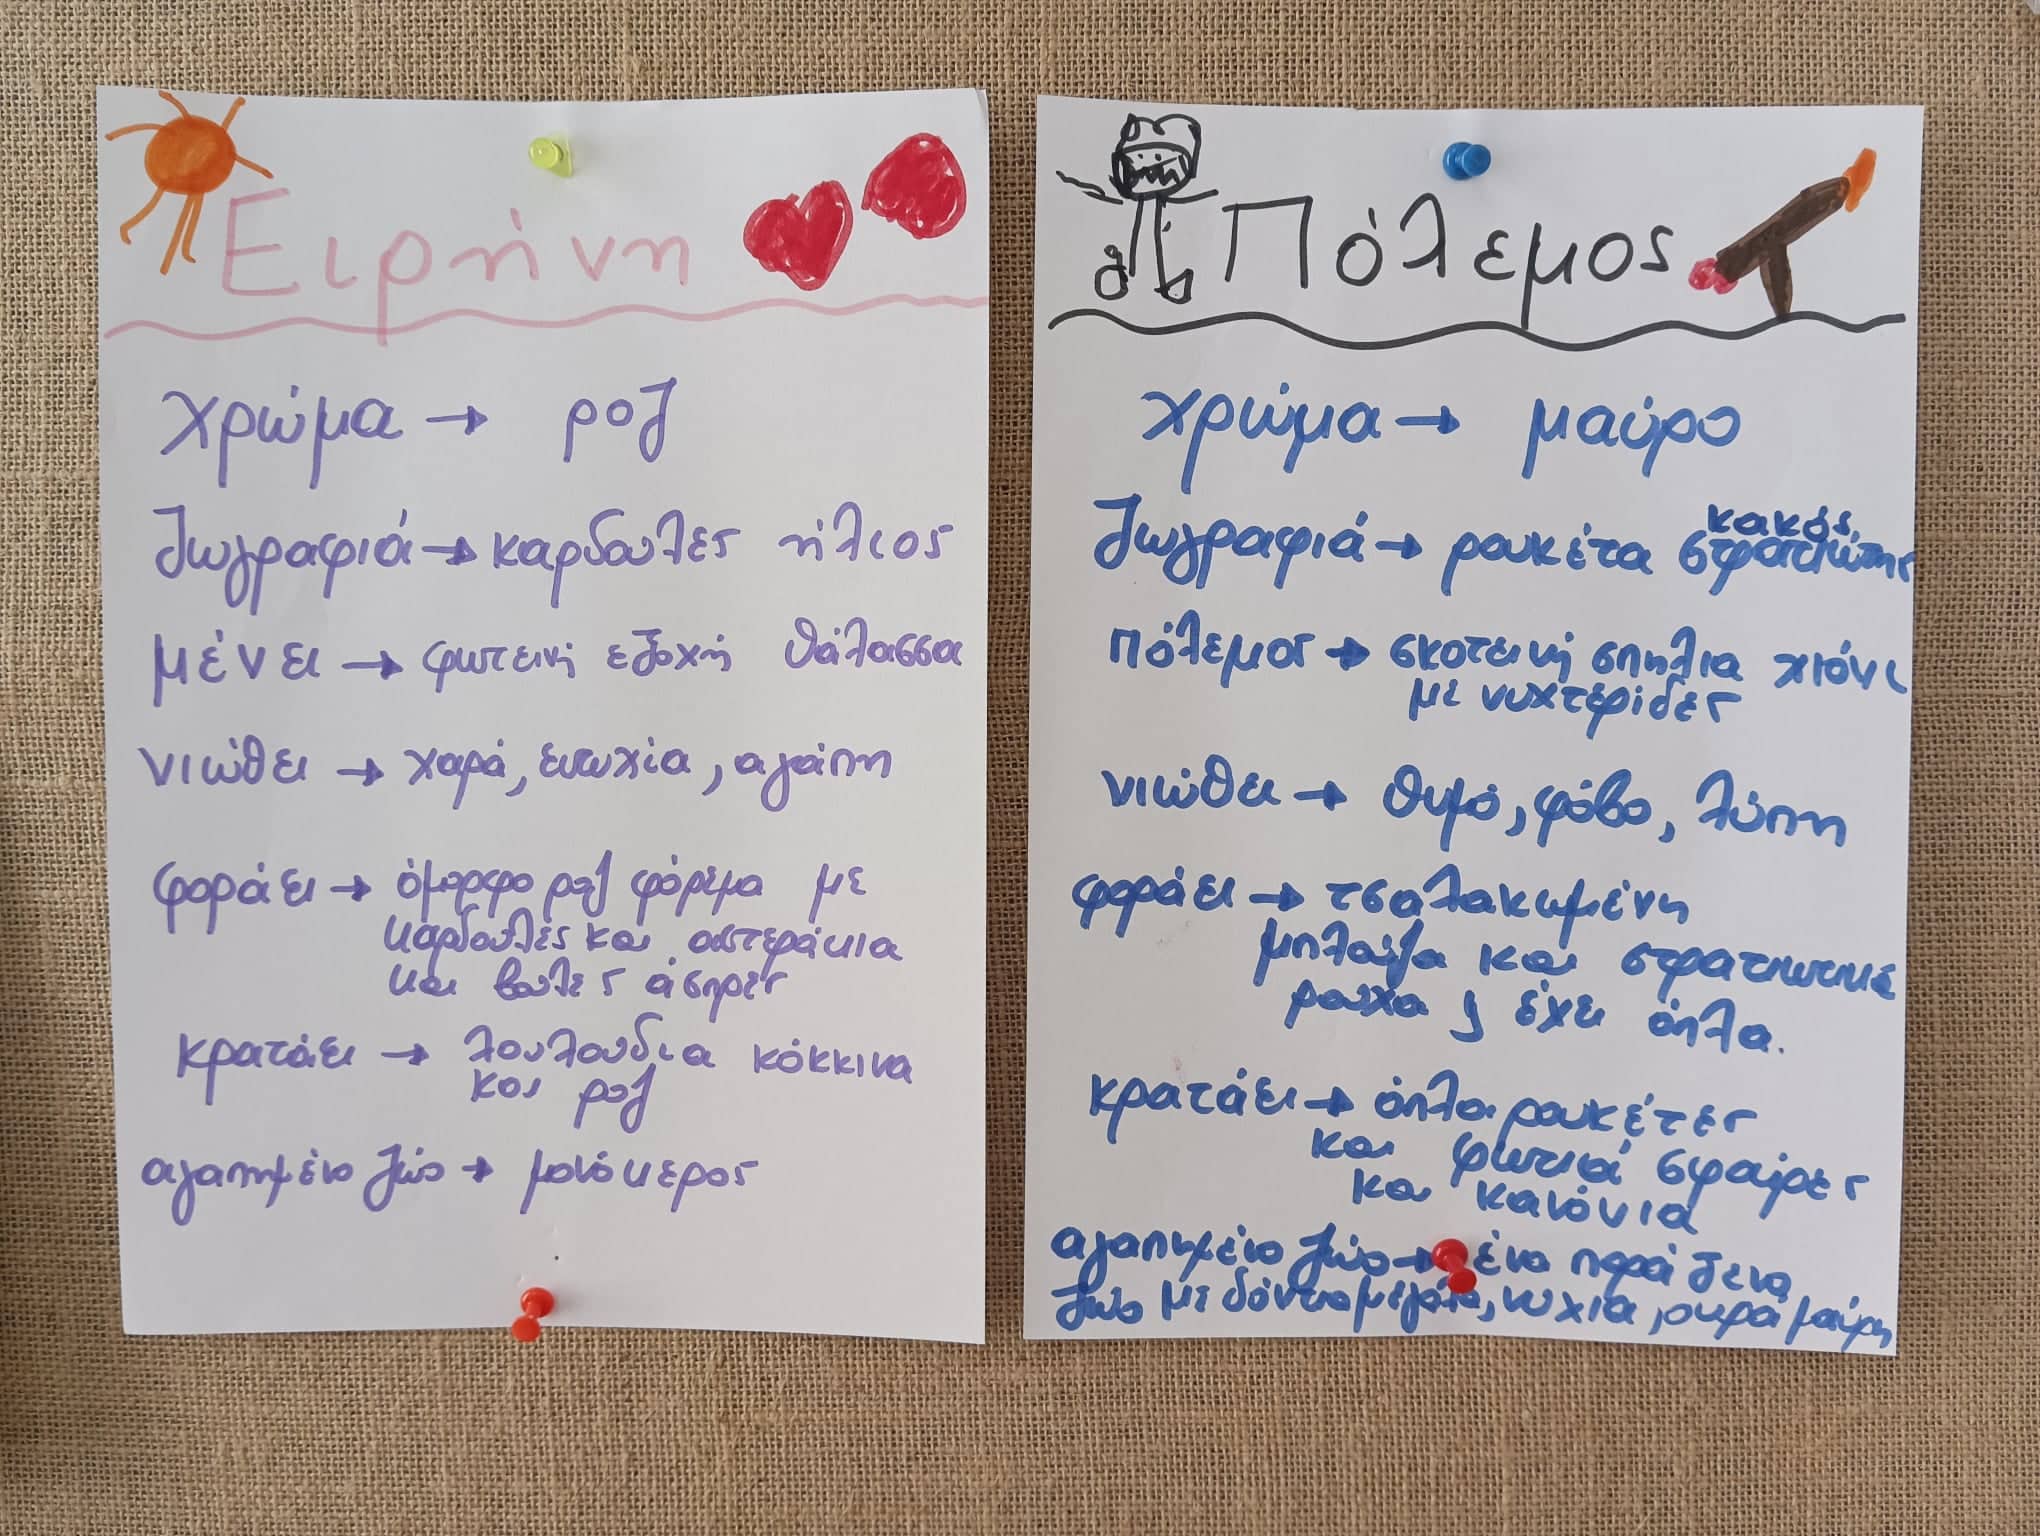 Ειρήνη
χρώμα → ροζ
ζωγραφιά → καρδούλες ήλιος
μένει → φωτεινή εξοχή θάλασσα
νιώθει → χαρά, ευτυχία, αγάπη
φοράει → όμορφο ροζ φόρεμα με
καρδούλες και αστεράκια
και βούλες άσπρες
κρατάει → λουλούδια κόκκινα
και ροζ
αγαπημένο ζώο → μονόκερος
Πόλεμος
χρώμα → μαύρο
κακός
ζωγραφιά → ρουκέτα στρατιώτης
πόλεμος → σκοτεινή σπηλιά χιόνι
με νυχτερίδες
νιώθει → θυμό, φόβο, λύπη
φοράει → τσαλακωμένη
μπλούζα και στρατιωτικά
ρούχα ς έχει όπλα.
κρατάει → όπλα ρουκέτες
και φωτιά σφαίρες
και κανόνια
αγαπημένο ζώο → ένα παράξενο
ζώο με δόντια μεγάλα, νύχια, ουρά μαύρη